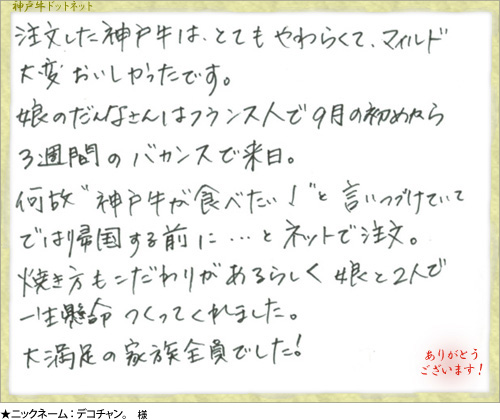 神戸牛ドットネット
注文した神戸牛は、とても やわらくて、マイルド
大変 おいしかったです。
娘のだんなさんはフランス人で9月の初めから
3週間の バカンスで来日。
何故"神戸牛が食べたい!"と 言いつづけていて
では帰国する前に…と ネットで注文。
焼き方もこだわりがあるらしく 娘と2人で
一生懸命 つくってくれました。
大満足の家族全員でした!
ありがとう
ございます!
★ニックネーム:デコチャン。 様